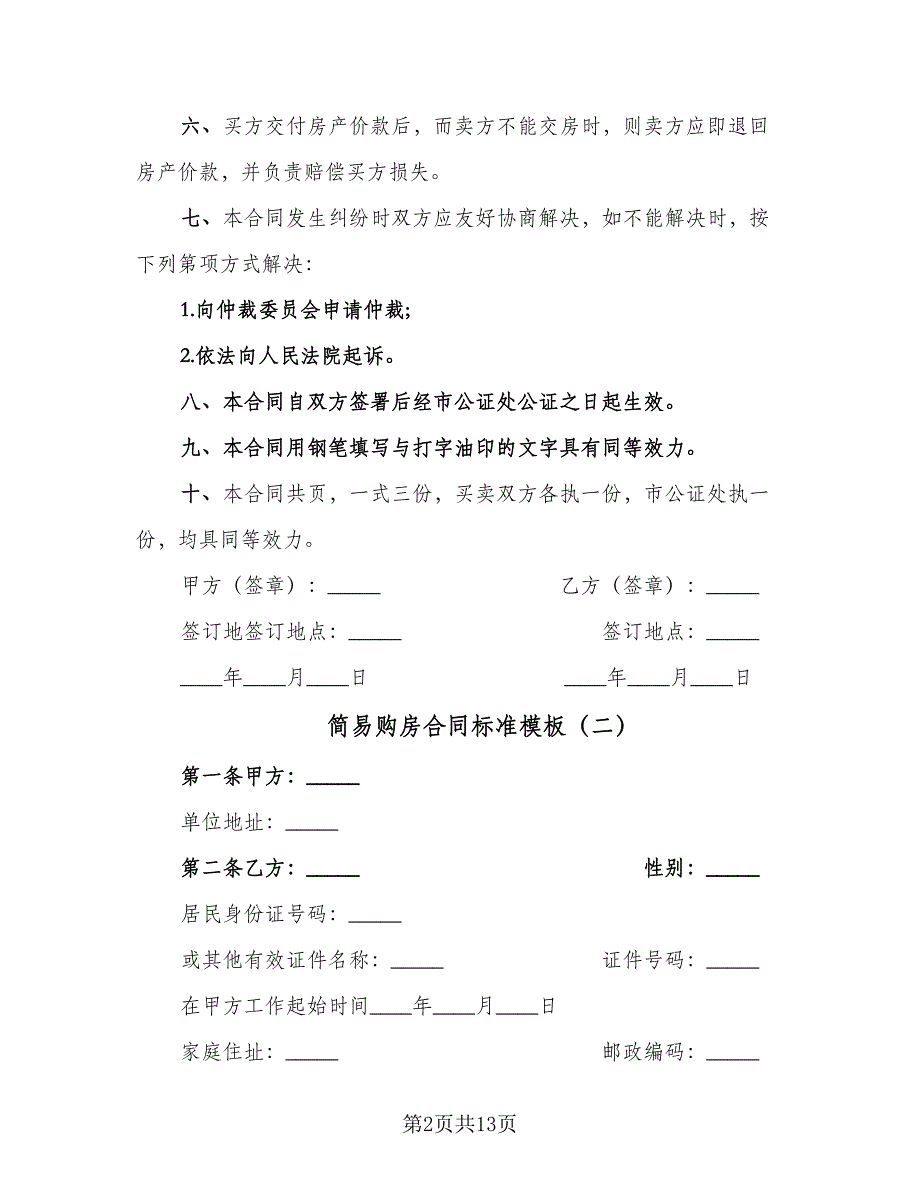 六、买方交付房产价款后，而卖方不能交房时，则卖方应即退回
房产价款，并负责赔偿买方损失。
七、本合同发生纠纷时双方应友好协商解决，如不能解决时，按
下列第项方式解决：
1.向仲裁委员会申请仲裁;
2.依法向人民法院起诉。
八、本合同自双方签署后经市公证处公证之日起生效。
九、本合同用钢笔填写与打字油印的文字具有同等效力。
十、本合同共页，一式三份，买卖双方各执一份，市公证处执一
份，均具同等效力。
甲方（签章）：_____ 乙方（签章）：_____
签订地签订地点：_____ 签订地点：_____
____年____月____日 ____年____月____日
简易购房合同标准模板（二）
第一条甲方：_____
单位地址：_____
第二条乙方：_____ 性别：_____
居民身份证号码：_____
或其他有效证件名称：_____ 证件号码：_____
在甲方工作起始时间____年____月____日
家庭住址：_____ 邮政编码：_____
第2页共13页